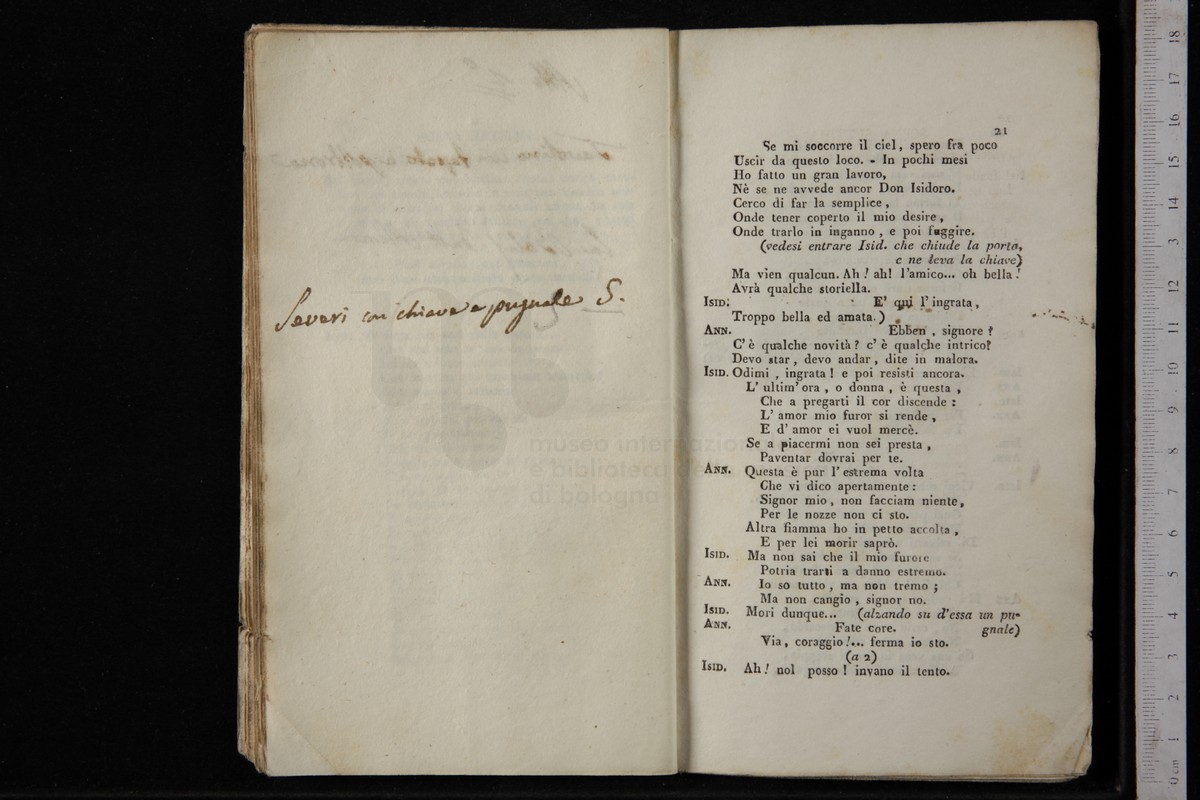 Severi con chiave e pugnale S.
museo internazionale
e biblioteca della
di bologna
21
Se mi soccorre il ciel, spero fra poco
Uscir da questo loco. - In pochi mesi
Ho fatto un gran lavoro,
Nè se ne avvede ancor Don Isidoro.
Cerco di far la semplice,
Onde tener coperto il mio desire,
Onde trarlo in inganno, e poi fuggire.
(vedesi entrare Isid. che chiude la porta,
e ne leva la chiave)
Ma vien qualcun. Ah! ah! l'amico... oh bella!
Avrà qualche storiella.
Isid. E' qui l'ingrata,
Troppo bella ed amata.)
Ann. Ebben, signore?
C'è qualche novità? c'è qualche intrico?
Devo star, devo andar, dite in malora.
Isid. Odimi, ingrata! e poi resisti ancora.
L'ultim'ora, o donna, è questa,
Che a pregarti il cor discende:
L'amor mio furor si rende,
E d'amor ei vuol mercè.
Se a piacermi non sei presta,
Paventar dovrai per te.
Ann. Questa è pur l'estrema volta
Che vi dico apertamente:
Signor mio, non facciam niente,
Per le nozze non ci sto.
Altra fiamma ho in petto accolta,
E per lei morir saprò.
Isid. Ma non sai che il mio furore
Potria trarti a danno estremo.
Ann. Io so tutto, ma non tremo;
Ma non cangio, signor no.
Isid. Mori dunque... (alzando su d'essa un pu-
Ann. Fate core. gnale)
Via, coraggio!... ferma io sto.
(a 2)
Isid. Ah! nol posso! invano il tento.